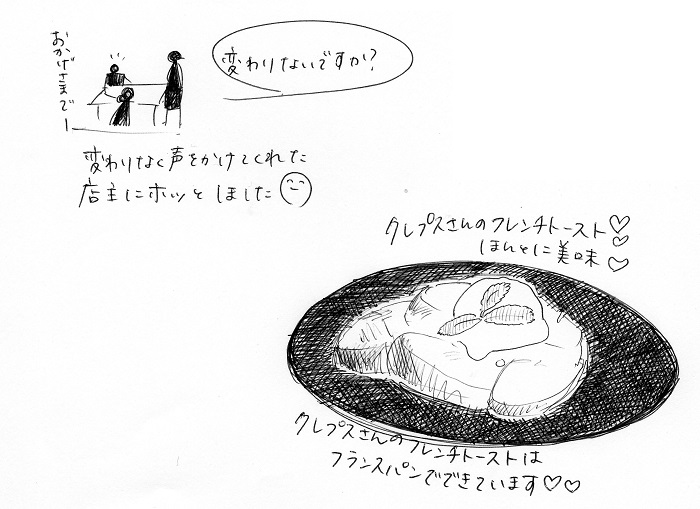 おかげさまでー
変わりないですか?
変わりなく声をかけてくれた
店主にホッとしました
クレプスさんのフレンチトースト♡
ほんとに美味♡♡
クレプスさんのフレンチトーストは
フランスパンでできています♡♡